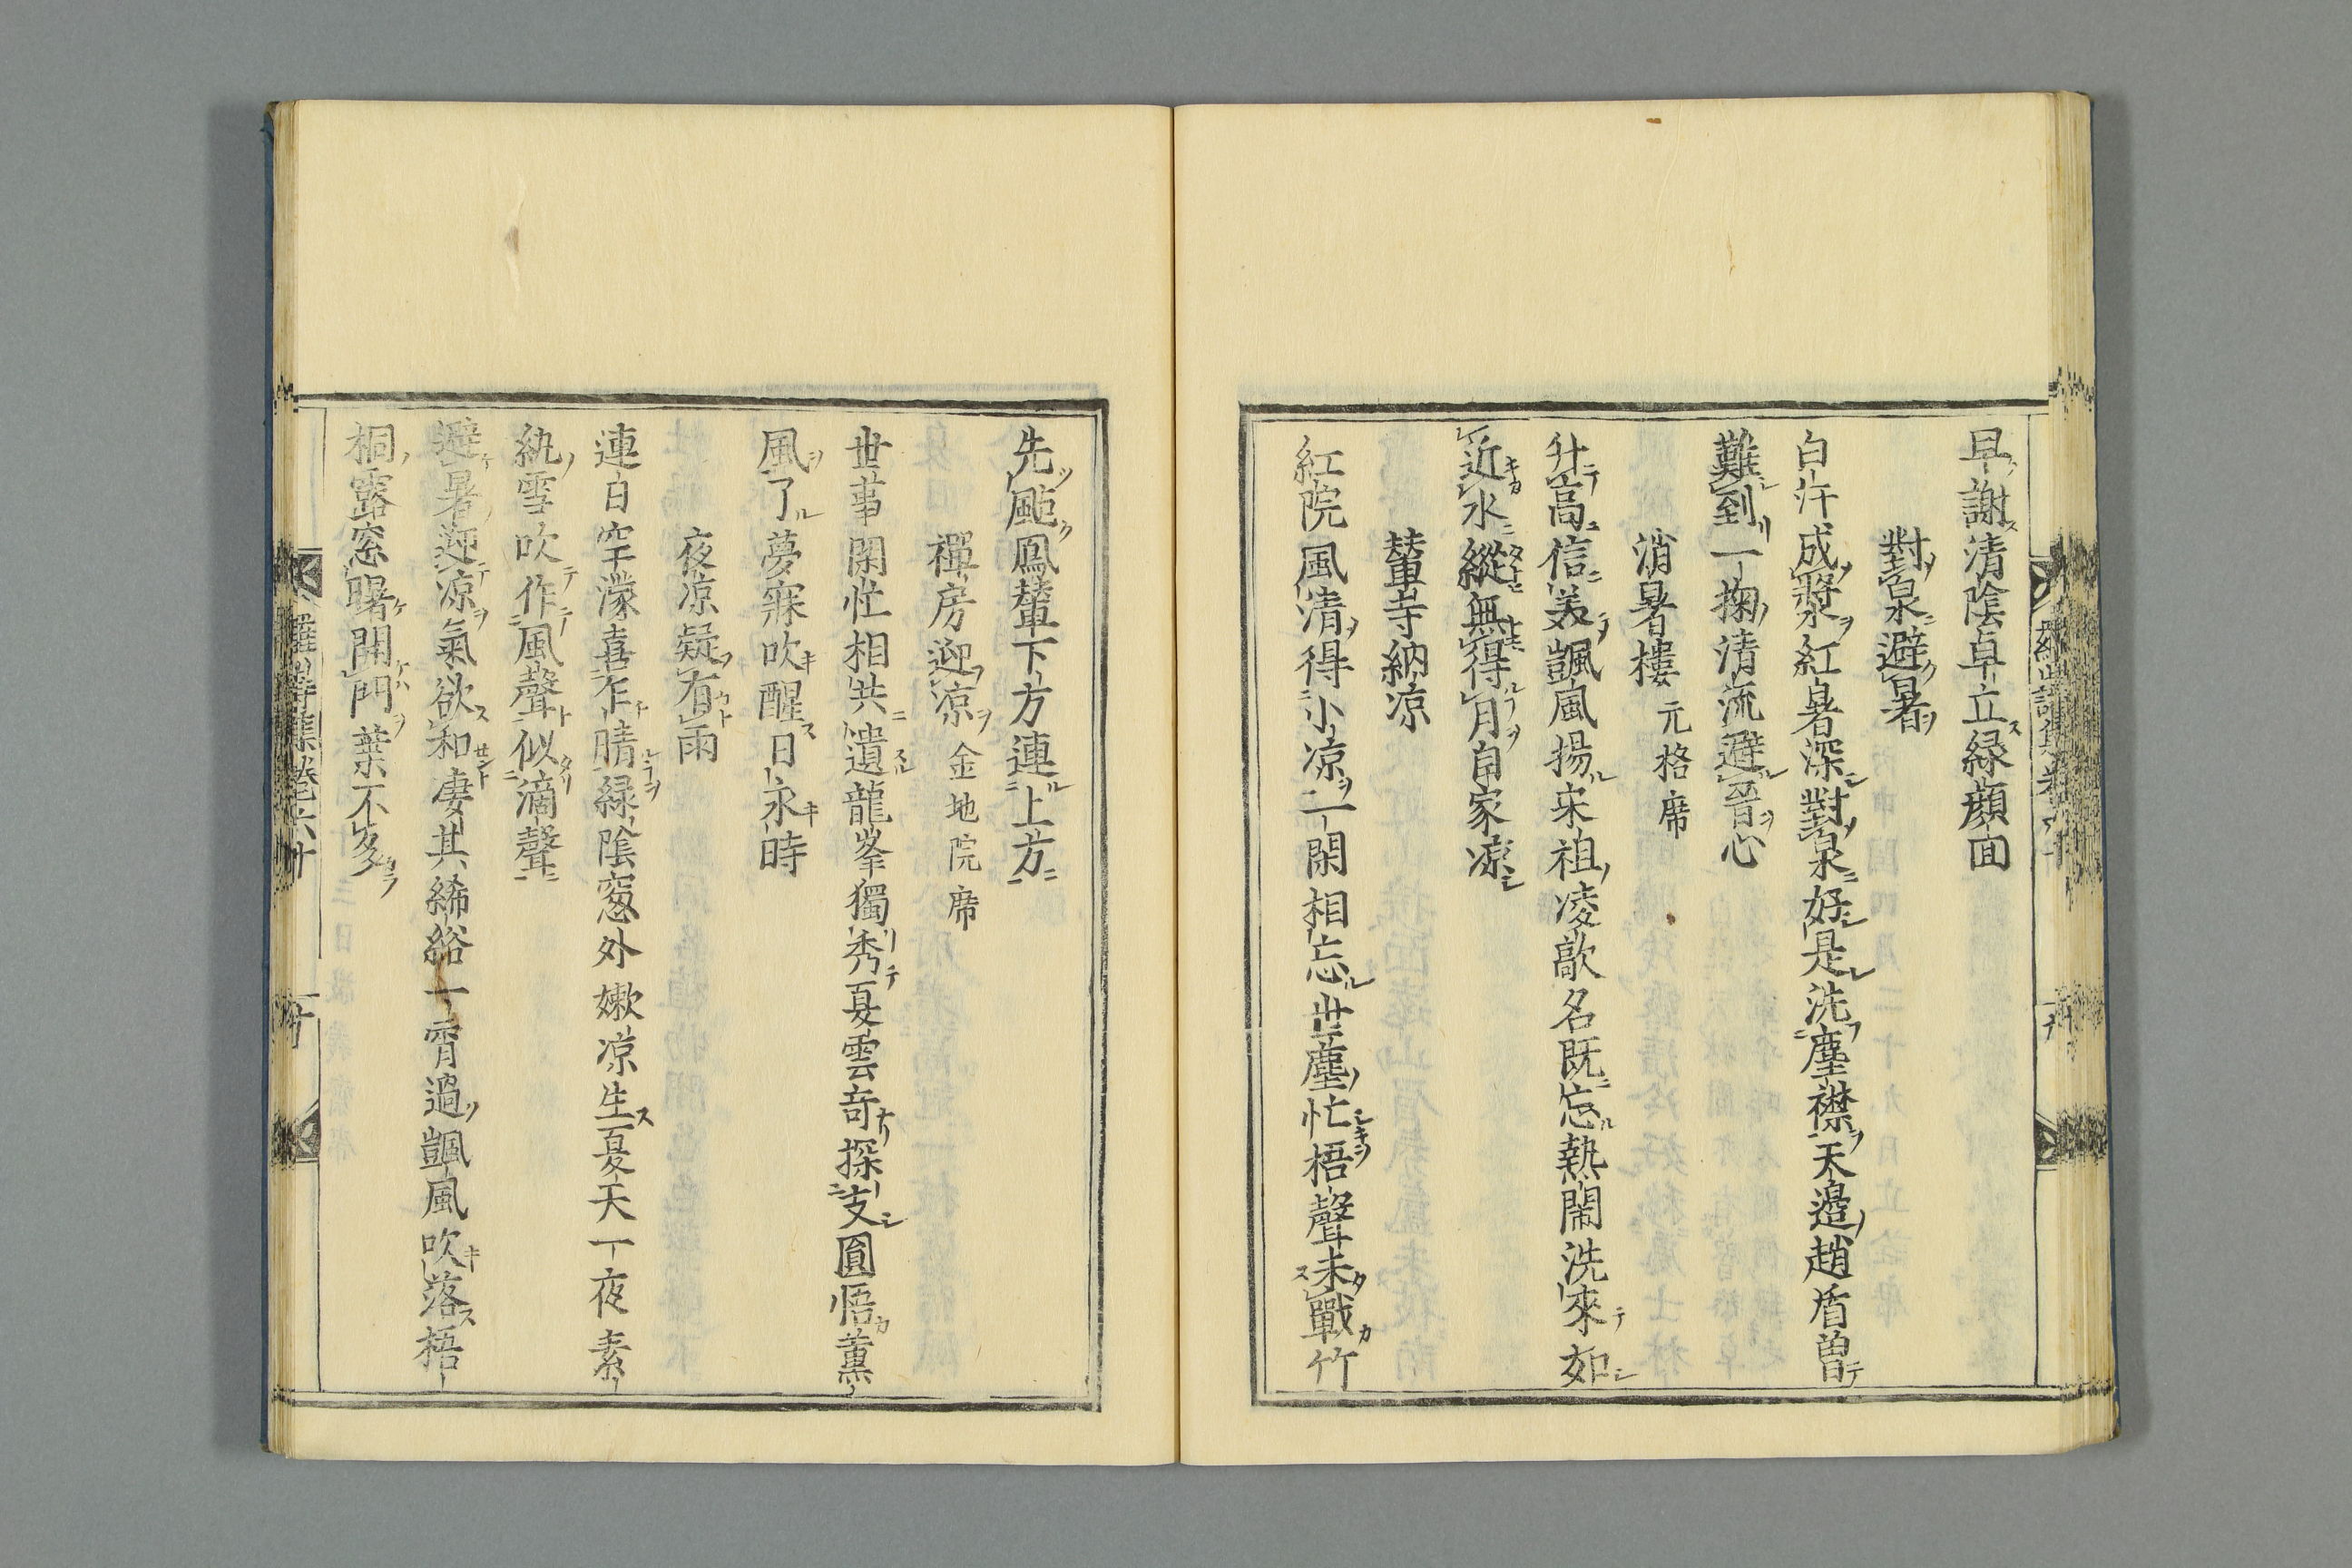 早謝清陰卓立緑顔面
對泉避暑
白汗成漿紅暑深對泉好是洗塵襟天邉趙盾曽
難到一掬清流避晉心
消暑樓 元格席
升高信美颽風揚宋祖凌歊名既忘熱鬧洗來如
近水縱無得月自家凉
輦寺納凉
紅院風清得小凉二閑相忘世塵忙梧聲未戰竹
先颭鳳輦下方連上方
禪房迎凉 金地院席
世事閑忙相共遺龍峯獨秀夏雲竒探支圓悟薫
風了夢寐吹醒日永時
夜凉疑有雨
連日空濛喜乍晴緑陰窓外嫩凉生夏天一夜素
紈雪吹作風聲似滴聲
避暑迎凉氣欲和凄其絺綌一宵過颽風吹落梧
桐露窓曙開門葉不多
羅山詩集卷六十